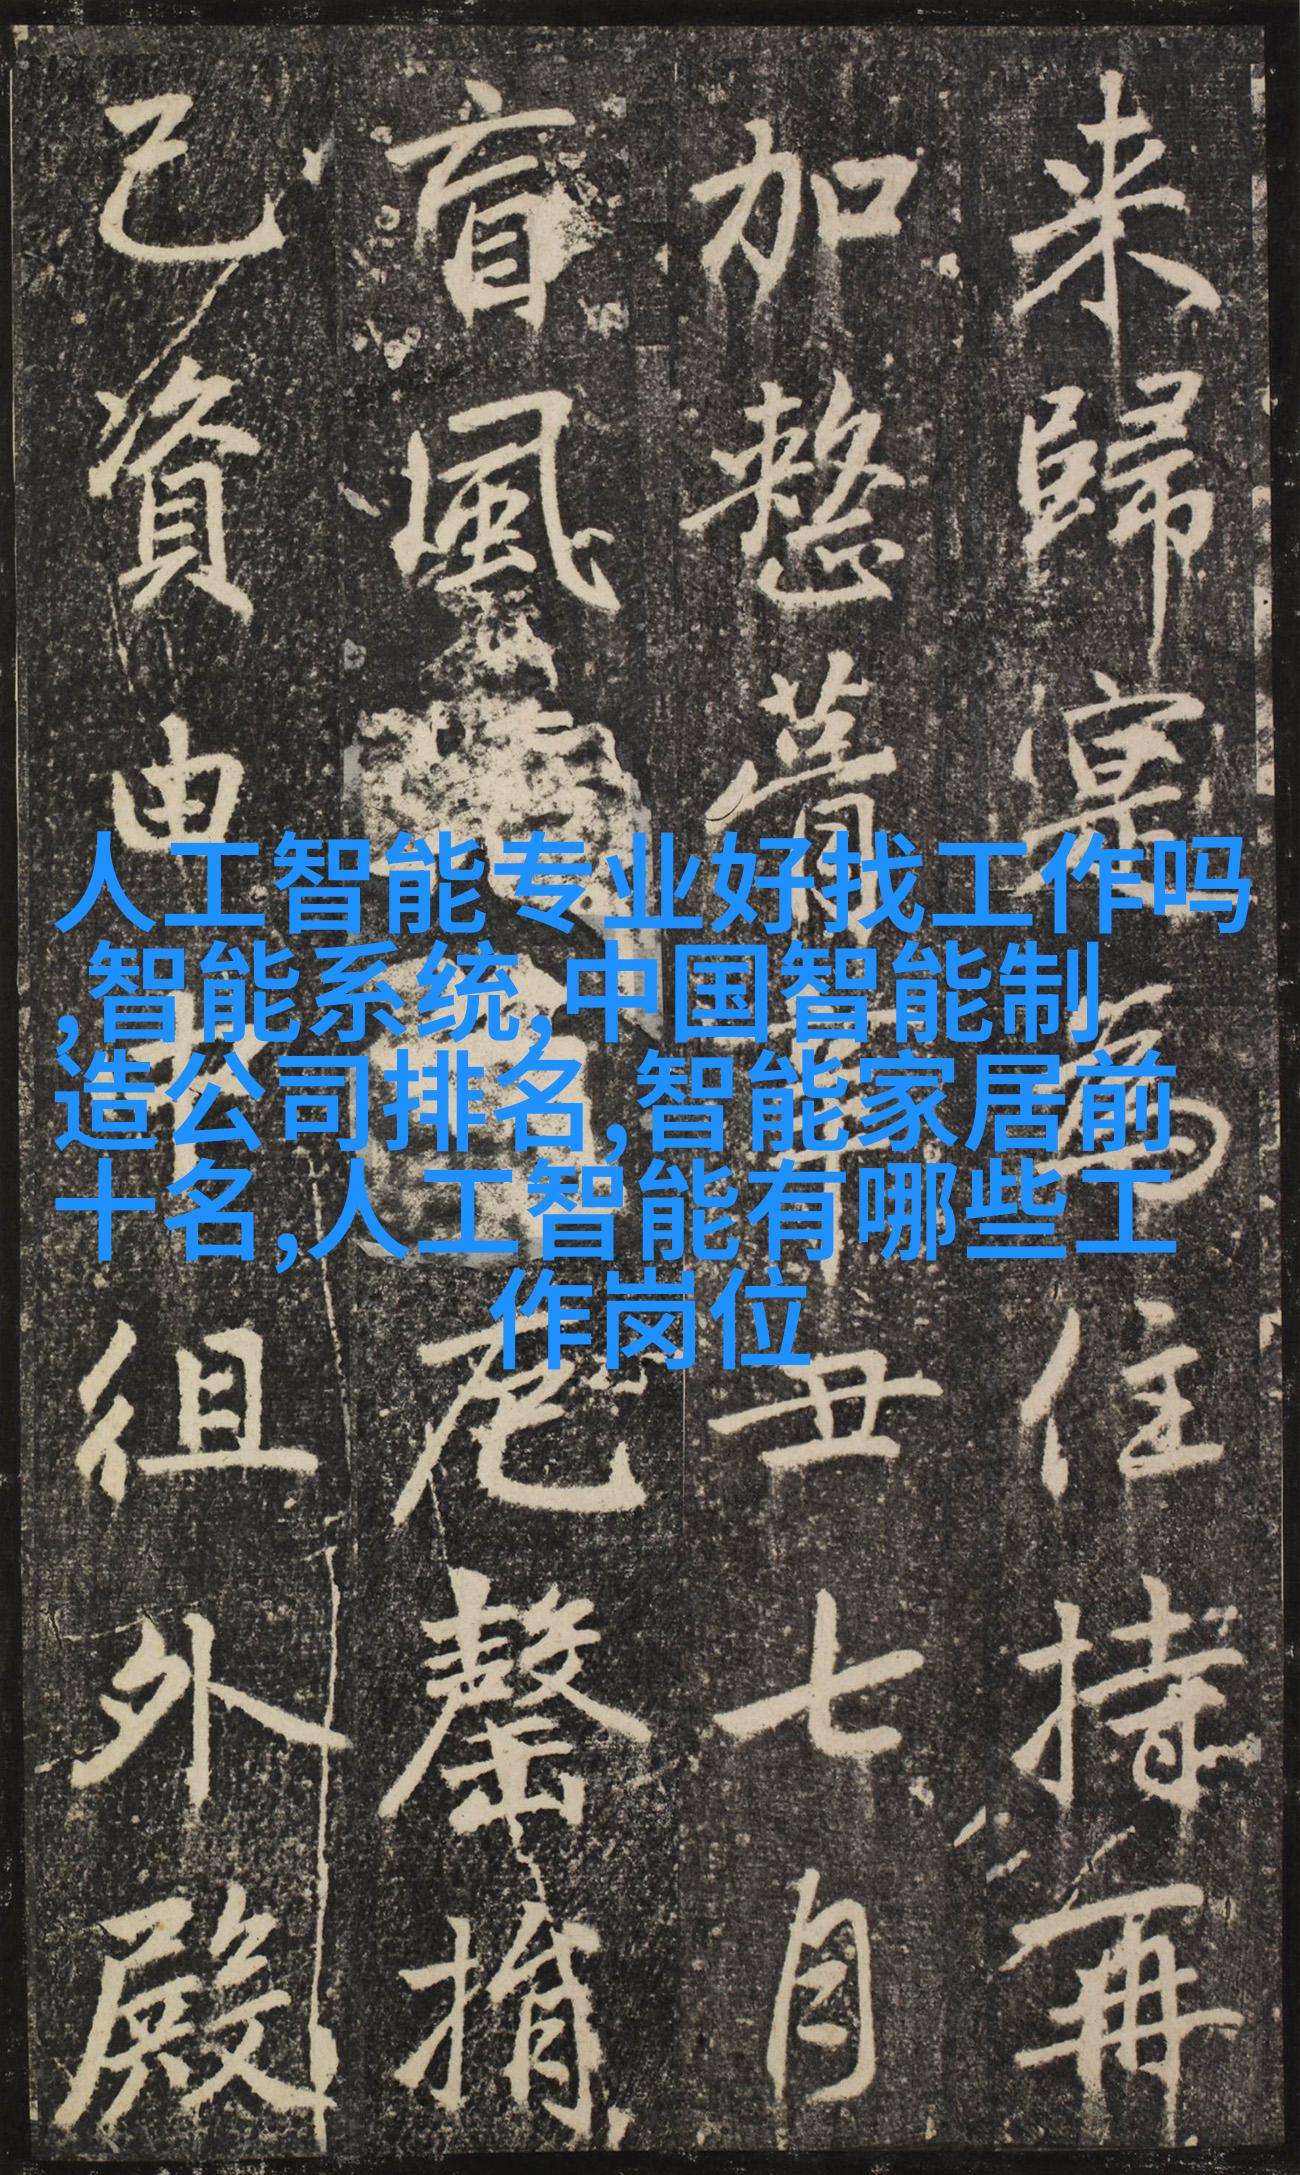 来歸寔為住持再
加整葺辛丑七月
盲風
尼罄捐
己資
徂外殿
人工智能专业好找工作吗
,智能系统,中国智能制
造公司排名,智能家居前
十名,人工智能有哪些工
作岗位